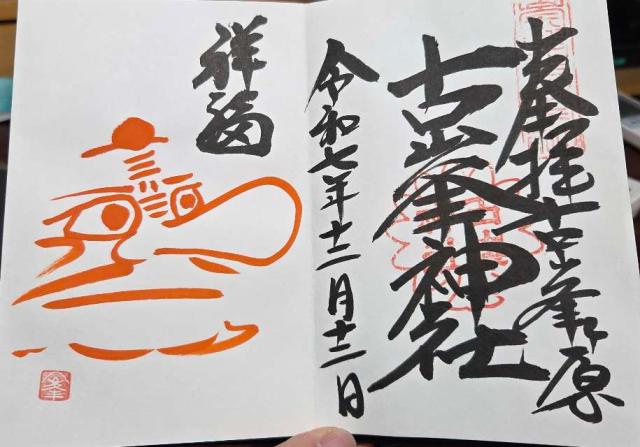 奉拝 古峯ヶ原
古峯神社
令和七年十二月十二日
祥福